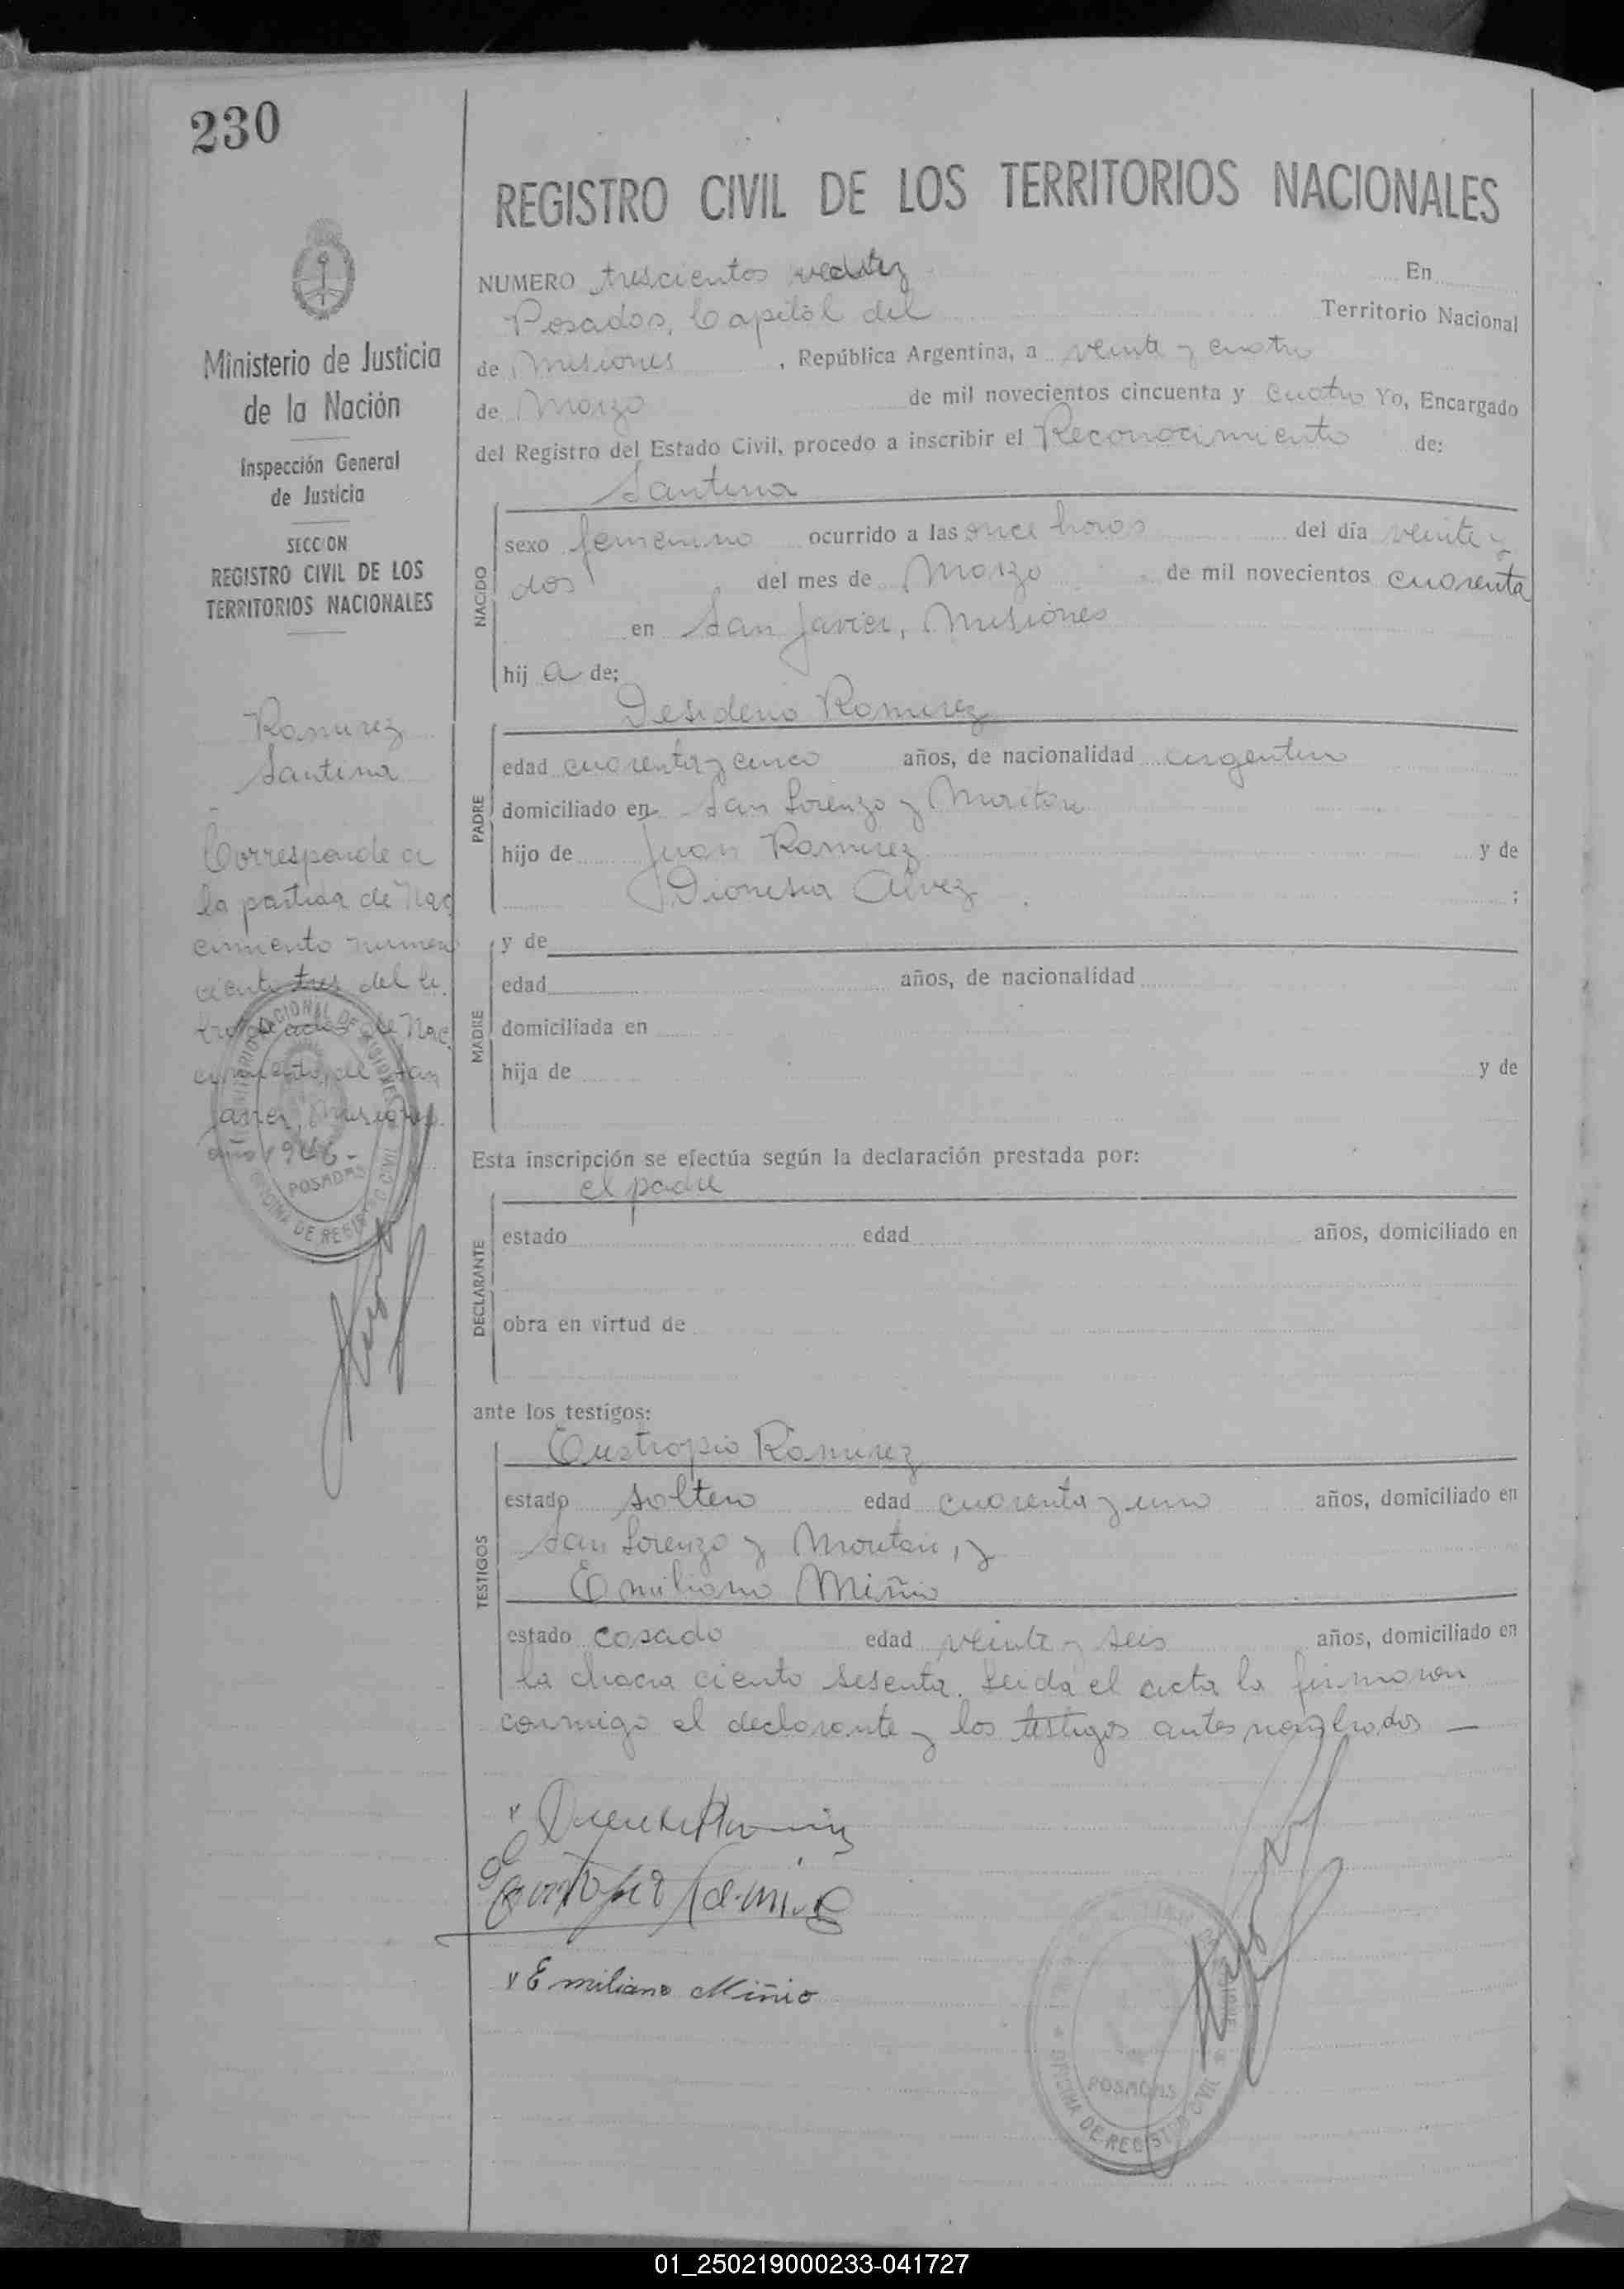 230
REGISTRO CIVIL DE LOS TERRITORIOS NACIONALES
NUMERO trescientos En
Posadas, Capital del Territorio Nacional
de Misiones, República Argentina, a veinte y cuatro
de Marzo de mil novecientos cincuenta y cuatro Yo, Encargado
del Registro del Estado Civil, procedo a inscribir el Reconocimiento de:
Santina
NACIDO
sexo femenino ocurrido a las once horas del día veinte y
dos del mes de Marzo de mil novecientos cuarenta
en San Javier, Misiones
hij a de:
Desiderio Ramirez
PADRE
edad cuarenta y cinco años, de nacionalidad argentino
domiciliado en San Lorenzo y
hijo de Juan Ramirez y de
Dionisia Alvez ;
MADRE
y de
edad años, de nacionalidad
domiciliada en
hija de y de
Esta inscripción se efectúa según la declaración prestada por:
el padre
DECLARANTE
estado edad años, domiciliado en
obra en virtud de
ante los testigos:
Eustropio Ramirez
TESTIGOS
estado soltero edad cuarenta y uno años, domiciliado en
San Lorenzo y , y
Emiliano Miño
estado casado edad veinte y seis años, domiciliado en
la chacra ciento sesenta. Leida el acta la firmaron
conmigo el declarante y los testigos antes nombrados —
Emiliano Miño
POSADAS
OFICINA DE REGISTRO CIVIL
Ministerio de Justicia
de la Nación
Inspección General
de Justicia
SECCION
REGISTRO CIVIL DE LOS
TERRITORIOS NACIONALES
Ramirez
Santina
Corresponde a
la partida de Nac
imiento numero
ciento tres del li
de Nac
imiento, de San
Javier, Misiones.
año
TERRITORIO NACIONAL DE MISIONES
POSADAS
OFICINA DE REGISTRO CIVIL
01_250219000233-041727